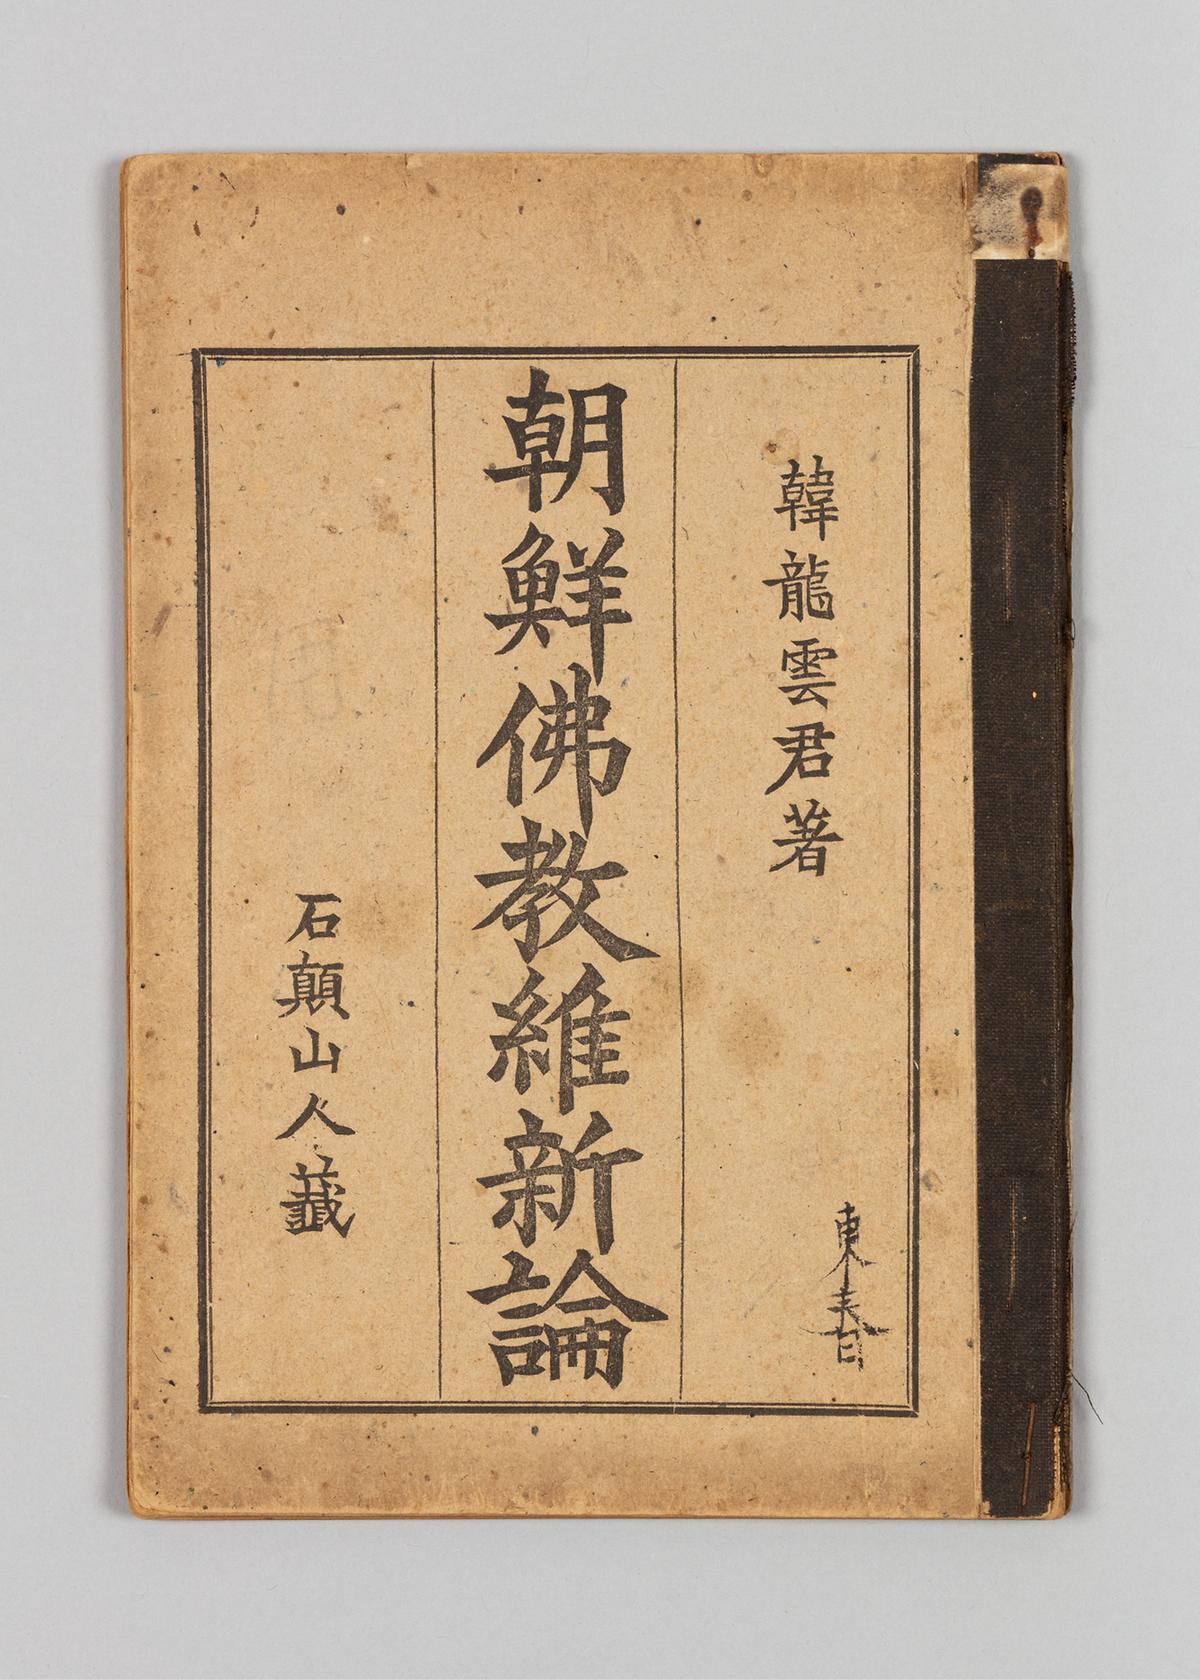 韓龍雲君著
東春
朝鮮佛敎維新論
石顚山人籤